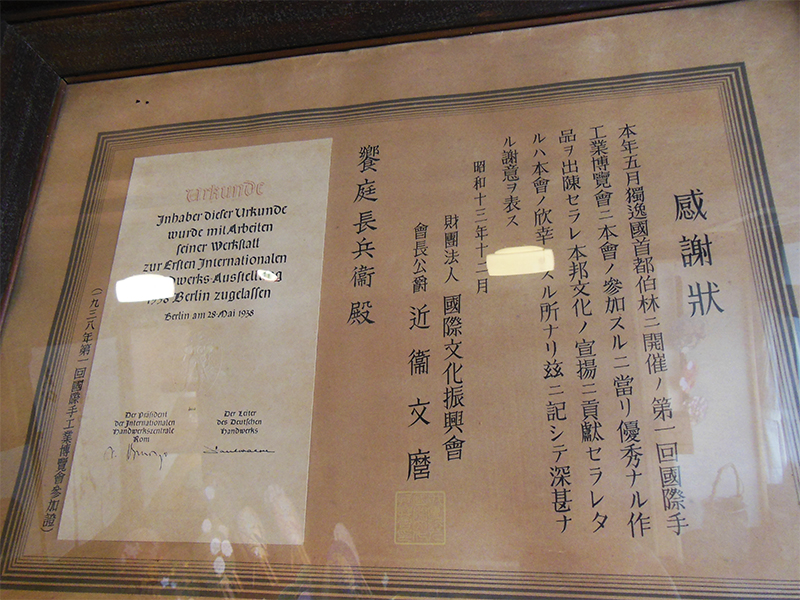 感謝狀
本年五月獨逸國首都伯林ニ開催ノ第一回國際手
工業博覽會ニ本會ノ參加スルニ當リ優秀ナル作
品ヲ出陳セラレ本邦文化ノ宣揚ニ貢獻セラレタ
ルハ本會ノ欣幸スル所ナリ茲ニ記シテ深甚ナ
ル謝意ヲ表ス
昭和十三年十二月
財團法人 國際文化振興會
會長公爵 近衞文麿
饗庭長兵衞殿
Urkunde
Inhaber dieser Urkunde
wurde mit Arbeiten
seiner Werkstatt
zur Ersten Internationalen
Ausstellung
1938 Berlin zugelassen
Berlin am 28·Mai 1938
Der Präsident
der Internationalen
Handwerkszentrale
Rom
Der Leiter
des Deutschen
Handwerks
(一九三八年第一回國際手工業博覽會參加證)